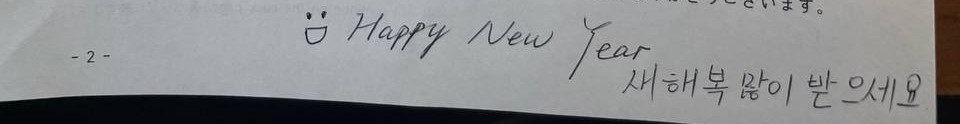 ざいます。
Happy New Year
- 2 -
새해 복 많이 받으세요